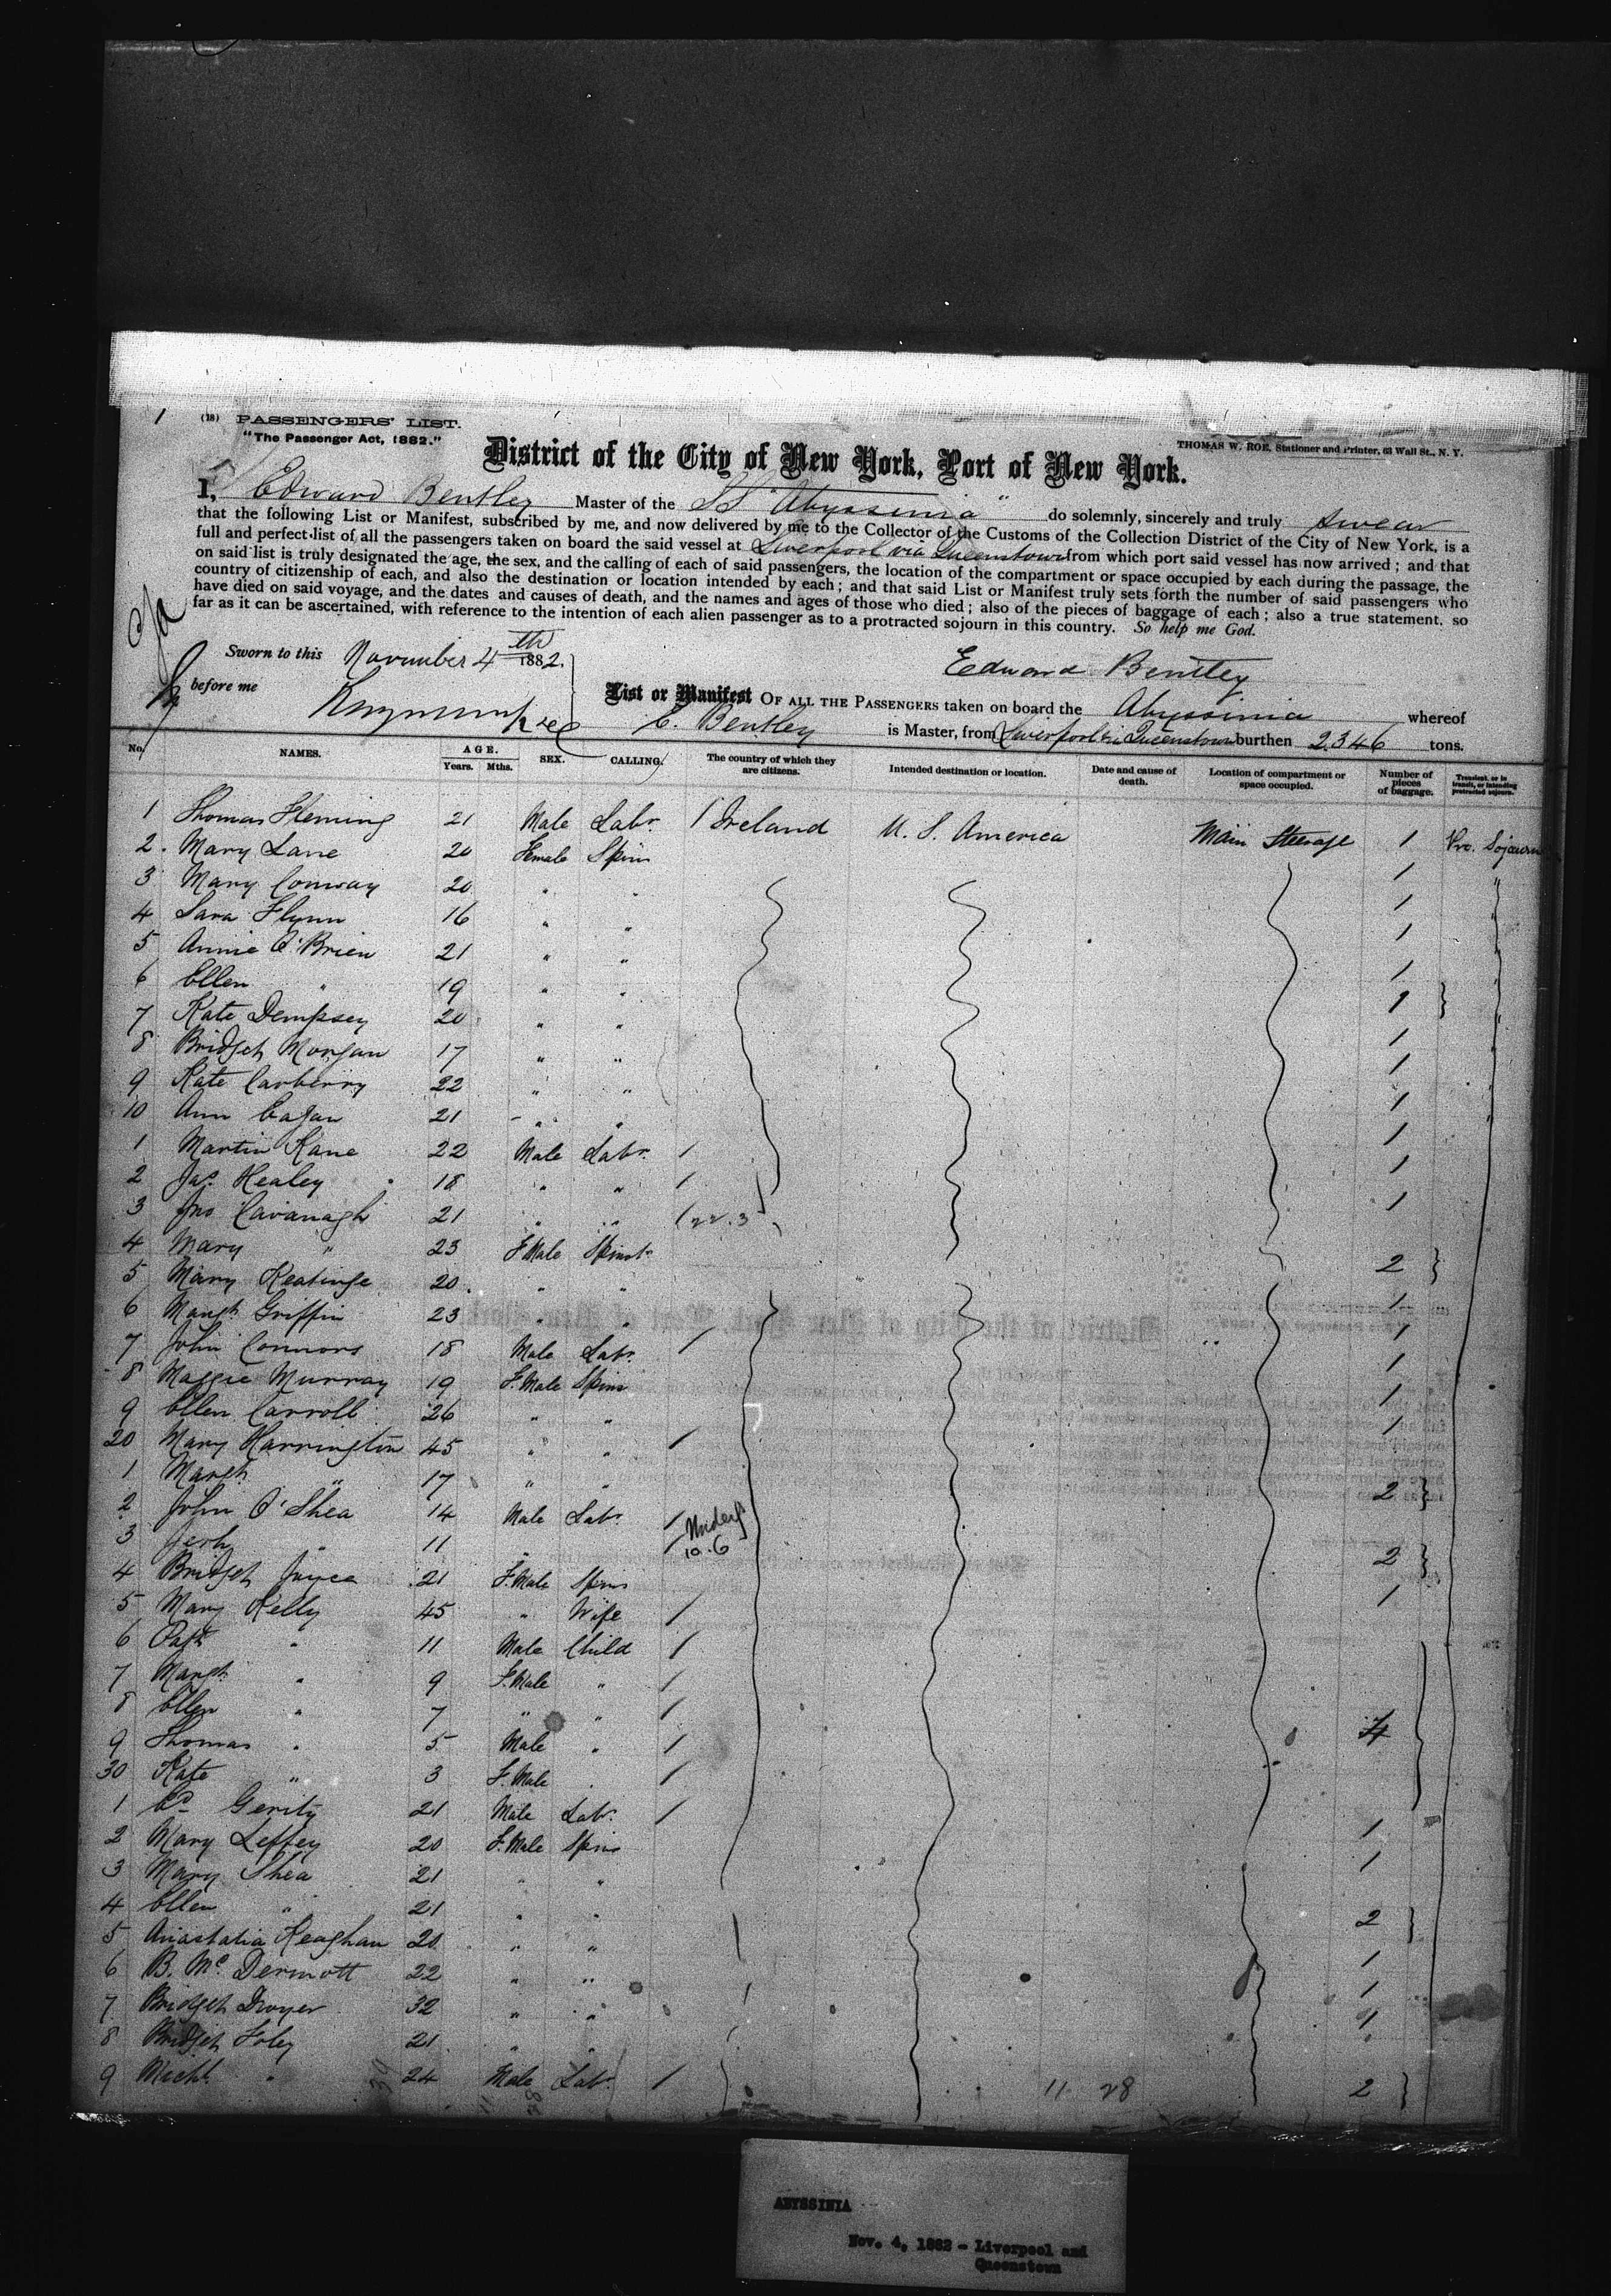 1
(18) PASSENGERS' LIST.
"The Passenger Act, 1882."
THOMAS W. ROE, Stationer and Printer, 63 Wall St., N. Y.
District of the City of New York, Port of New York.
I, Edward Bentley Master of the SS "Abyssinia" do solemnly, sincerely and truly swear
that the following List or Manifest, subscribed by me, and now delivered by me to the Collector of the Customs of the Collection District of the City of New York, is a
full and perfect list of all the passengers taken on board the said vessel at Liverpool via Queenstown from which port said vessel has now arrived; and that
on said list is truly designated the age, the sex, and the calling of each of said passengers, the location of the compartment or space occupied by each during the passage, the
country of citizenship of each, and also the destination or location intended by each; and that said List or Manifest truly sets forth the number of said passengers who
have died on said voyage, and the dates and causes of death, and the names and ages of those who died; also of the pieces of baggage of each; also a true statement, so
far as it can be ascertained, with reference to the intention of each alien passenger as to a protracted sojourn in this country. So help me God.
Sworn to this November 4th 1882.
Edward Bentley
before me
List or Manifest OF ALL THE PASSENGERS taken on board the Abyssinia whereof
E. Bentley is Master, from Liverpool via Queenstown burthen 2346 tons.
No. NAMES. AGE. Years. Mths. SEX. CALLING. The country of which they are citizens. Intended destination or location. Date and cause of death. Location of compartment or space occupied. Number of pieces of baggage. Transient, or in transit, or intending protracted sojourn.
1 Thomas Fleming 21 Male Labr. 1 Ireland U. S. America Main Steerage 1 Pro. Sojourn
2 Mary Lane 20 Female Spin 1 "
3 Mary Conway 20 " " 1 "
4 Sara Flynn 16 " " 1
5 Annie O'Brien 21 " " 1 "
6 Ellen " 19 " " 1 }
7 Kate Dempsey 20 " " 1
8 Bridget Morgan 17 " " 1
9 Kate Carberry 22 " " 1
10 Ann Eagan 21 " " 1
1 Martin Kane 22 Male Labr. 1 1
2 Jas. Healey 18 " " 1 1
3 Jno Cavanagh 21 " " 1 22.3
4 Mary " 23 F.Male Spinst. 2 }
5 Mary Keatinge 20 " " 1
6 Margt. Griffin 23 " 1
7 John Connors 18 Male Labr. 1 1
8 Maggie Murray 19 F.Male Spins 1
9 Ellen Carroll 26 " " 1
20 Mary Harrington 45 " " 1
1 Margt. " 17 " " 2 }
2 John O'Shea 14 Male Labr. 1 Under
3 Jerh. " 11 " 1 10.6 2 }
4 Bridget Joyce 21 F.Male Spins 1
5 Mary Kelly 45 " Wife 1
6 Patk. " 11 Male Child 1
7 Margt. " 9 F.Male " 1
8 Ellen " 7 " " 1 4
9 Thomas " 5 Male " 1
30 Kate " 3 F.Male " 1
1 Ed. Gerity 21 Male Labr. 1 1
2 Mary Leffey 20 F.Male Spins 1
3 Mary Shea 21 " "
4 Ellen " 21 " " 2 }
5 Anastatia Keaghan 20 " " 1
6 B. McDermott 22 " " 1
7 Bridget Dwyer 32 " " 1
8 Bridget Foley 21 " "
9 Michl. " 24 Male Labr. 1 11 28 2 }
ABYSSINIA
Nov. 4, 1882 - Liverpool and
Queenstown